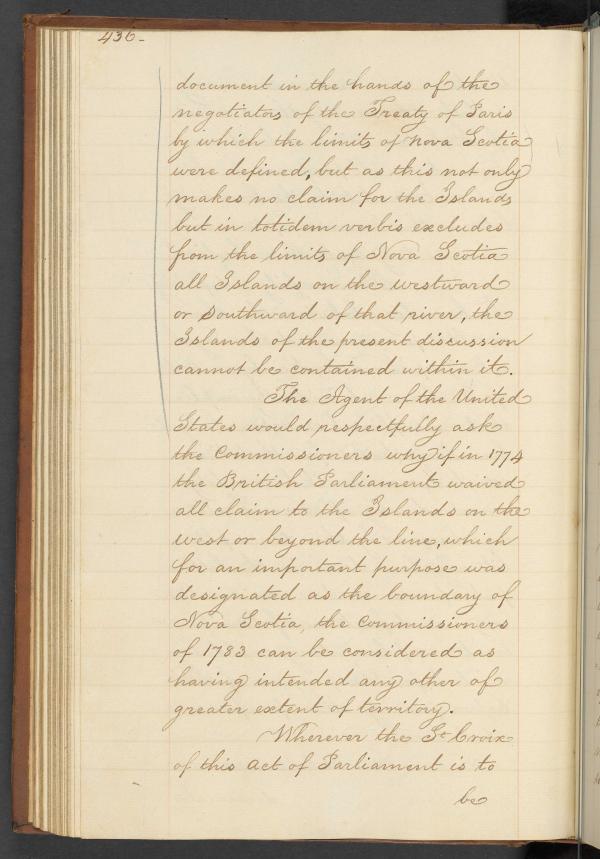 436-
document in the hands of the
negotiators of the Treaty of Paris
by which the limits of Nova Scotia
were defined, but as this not only
makes no claim for the Islands
but in totidem verbis excludes
from the limits of Nova Scotia
all Islands on the westward
or Southward of that river, the
Islands of the present discussion
cannot be contained within it.
The Agent of the United
States would respectfully ask
the Commissioners why if in 1774
the British Parliament waived
all claim to the Islands on the
west or beyond the line, which
for an important purpose was
designated as the boundary of
Nova Scotia, the Commissioners
of 1783 can be considered as
having intended any other of
greater extent of territory.
Wherever the St Croix
of this Act of Parliament is to
be